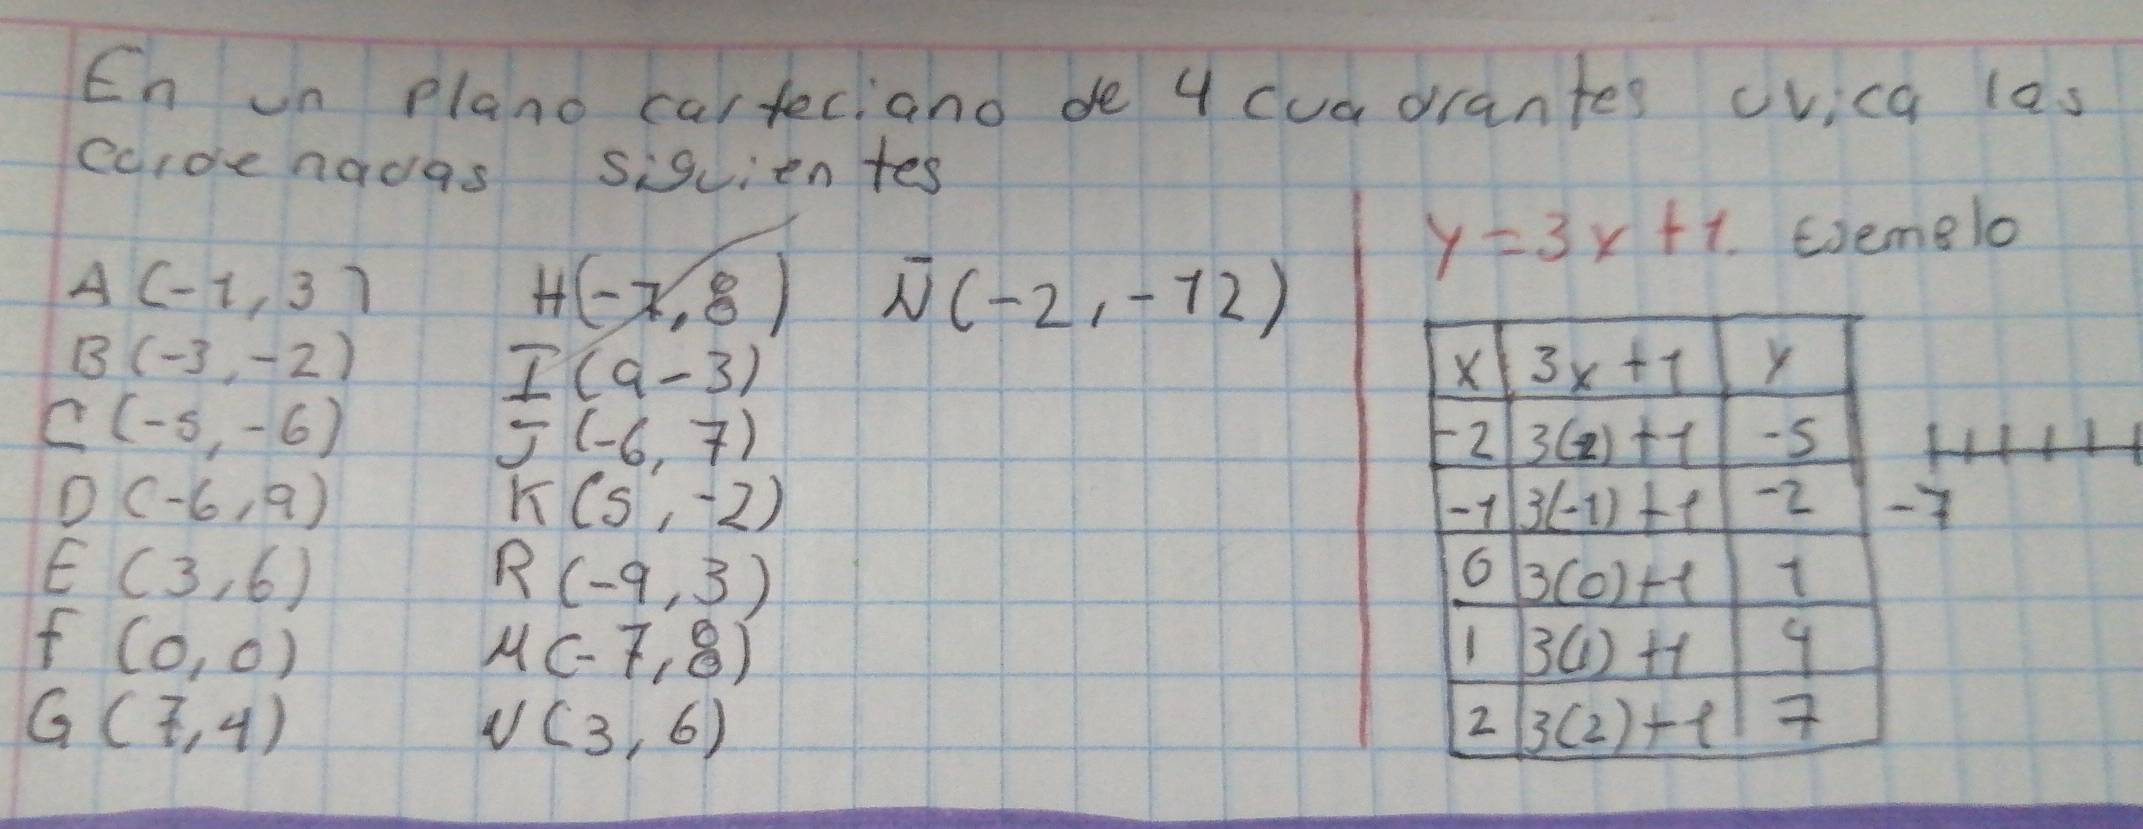 En un plano carteciano de 4 cuadrantes uvica las
cordenadas siguientes
A (-1, 3)
B (-3, -2)
C (-5, -6)
D (-6, 9)
E (3, 6)
f (0, 0)
G (7, 4)
H(-7, 8)
I (9 - 3)
J (-6, 7)
K (5, -2)
R (-9, 3)
M (-7, 8)
N (3, 6)
Ñ (-2, -12)
y = 3x + 1. Ejemplo
x 3x + 1 y
-2 3(-2) + 1 -5
-1 3(-1) + 1 -2
0 3(0) + 1 1
1 3(1) + 1 4
2 3(2) + 1 7
-7